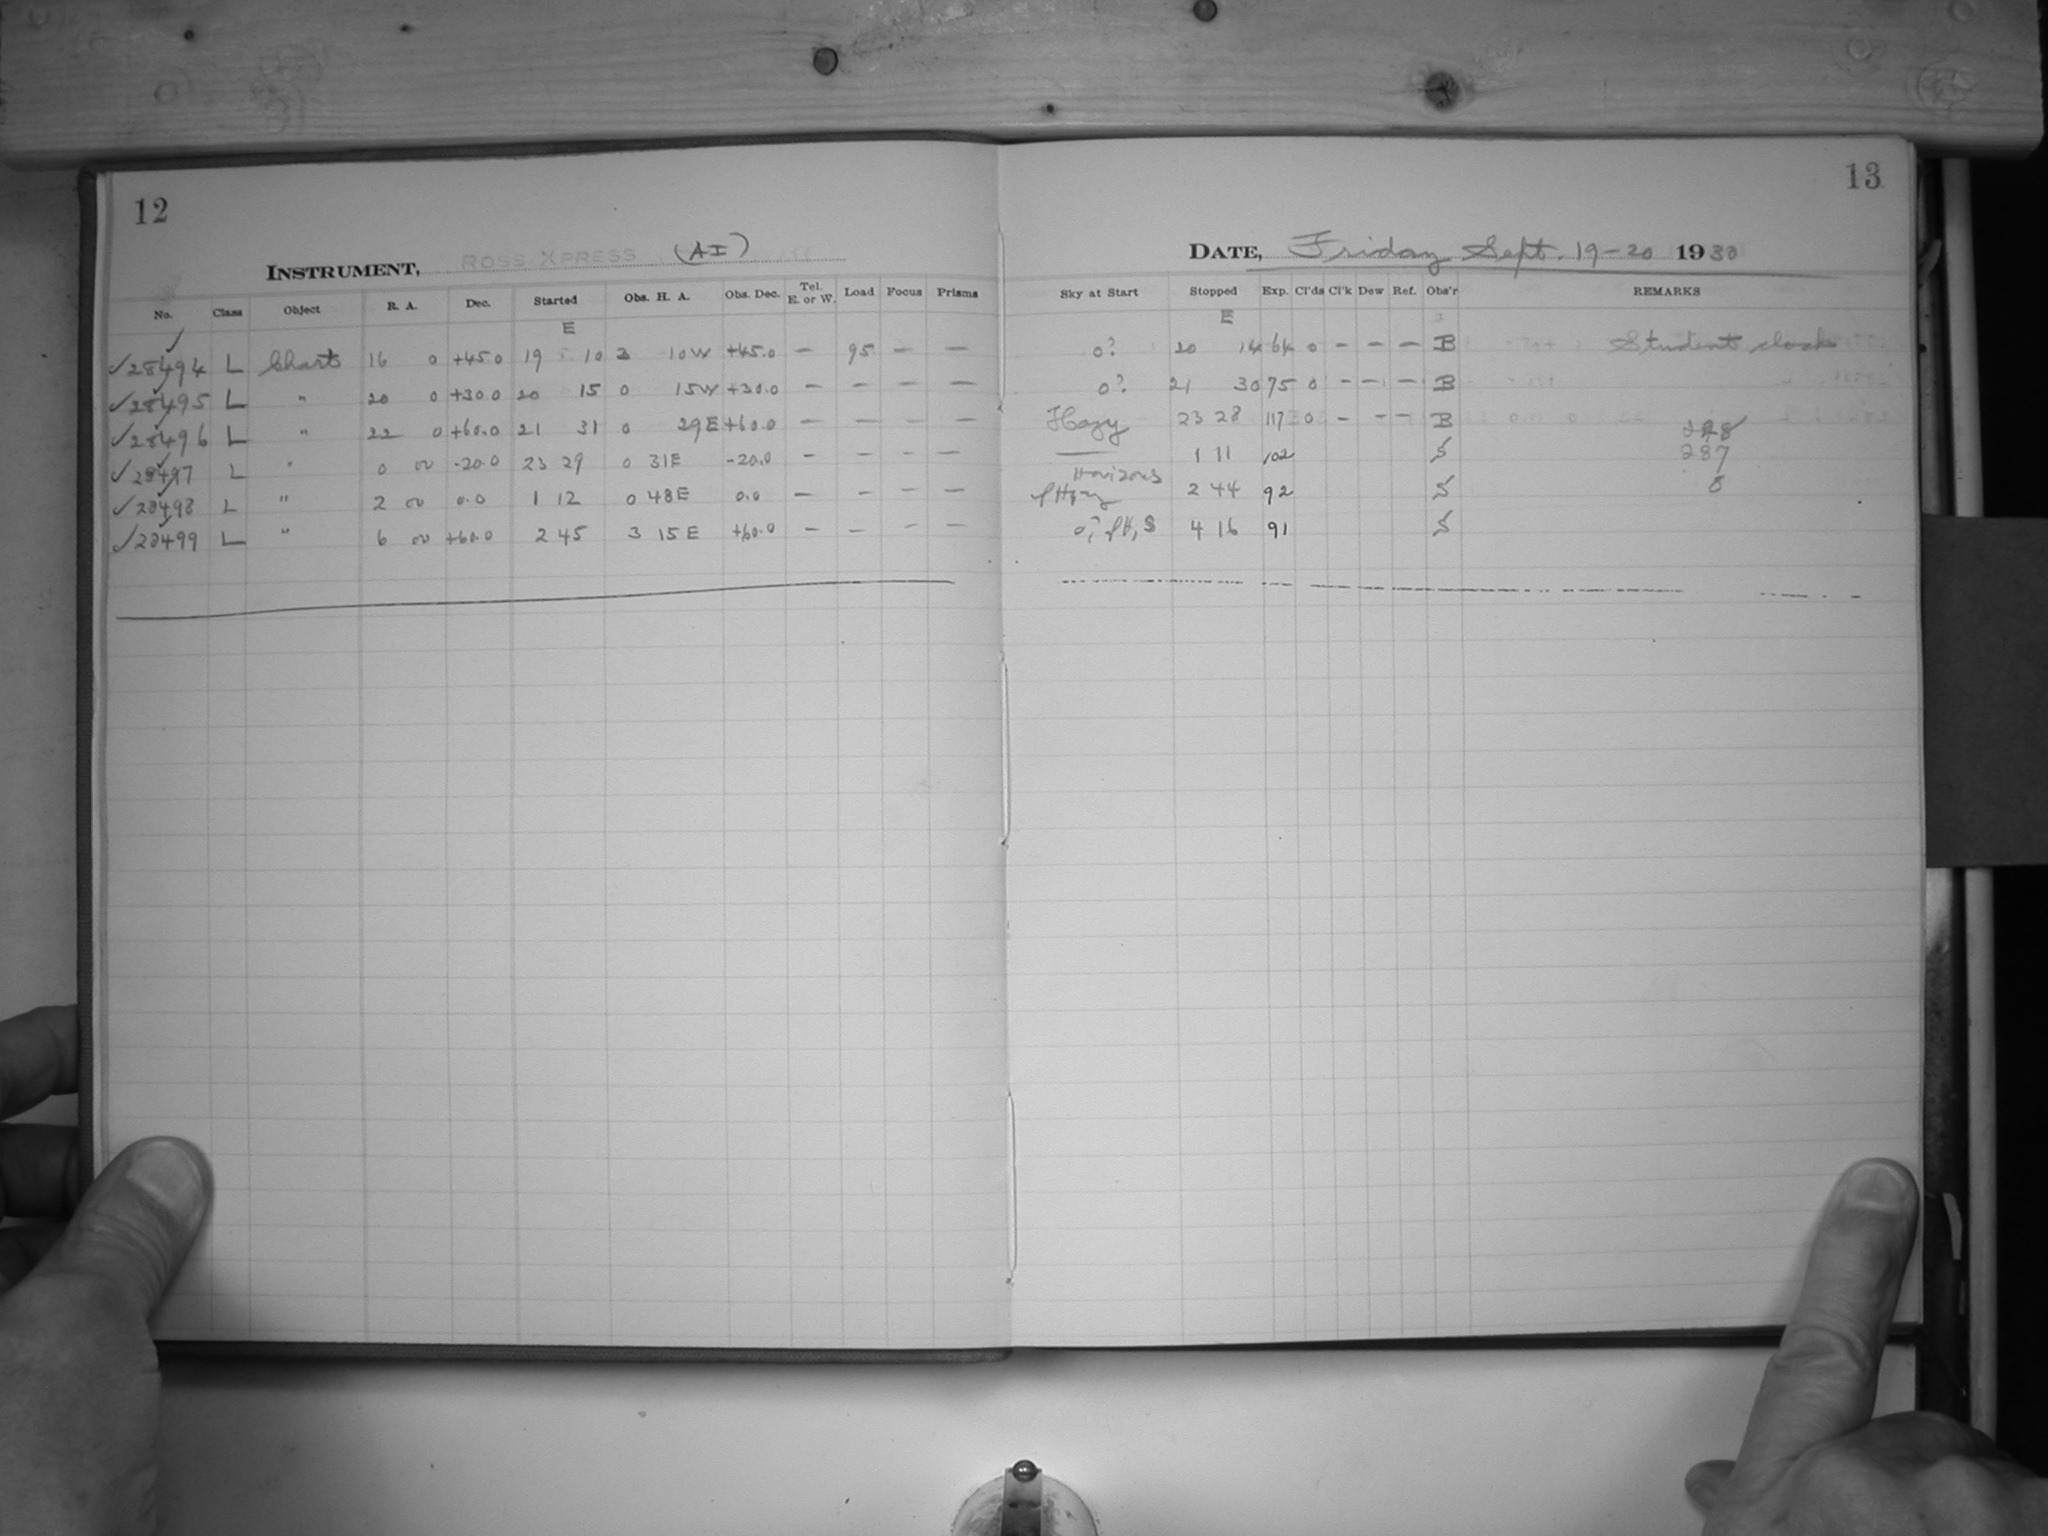 12
INSTRUMENT, ROSS XPRESS (AI)
No. Class Object R. A. Dec. Started Obs. H. A. Obs. Dec. Tel. E. or W. Load Focus Prisms
E
✓28494 L Charts 16 0 +45.0 19 10 3 10W +45.0 — 95 — —
✓28495 L " 20 0 +30.0 20 15 0 15W +30.0 — — — —
✓28496 L " 22 0 +60.0 21 31 0 29E +60.0 — — — —
✓28497 L " 0 00 -20.0 23 29 0 31E -20.0 — — — —
✓28498 L " 2 00 0.0 1 12 0 48E 0.0 — — — —
✓28499 L " 6 00 +60.0 2 45 3 15E +60.0 — — — —
13
DATE, Friday Sept. 19-20 1930
Sky at Start Stopped Exp. Cl'ds Cl'k Dew Ref. Obs'r REMARKS
E
0? 20 14 64 0 — — — B Student clock
0? 21 30 75 0 — — — B
Hazy 23 28 117 0 — — — B
— 1 11 102 S 287
Horizons 2 44 92 S 8
0? 4 16 91 S